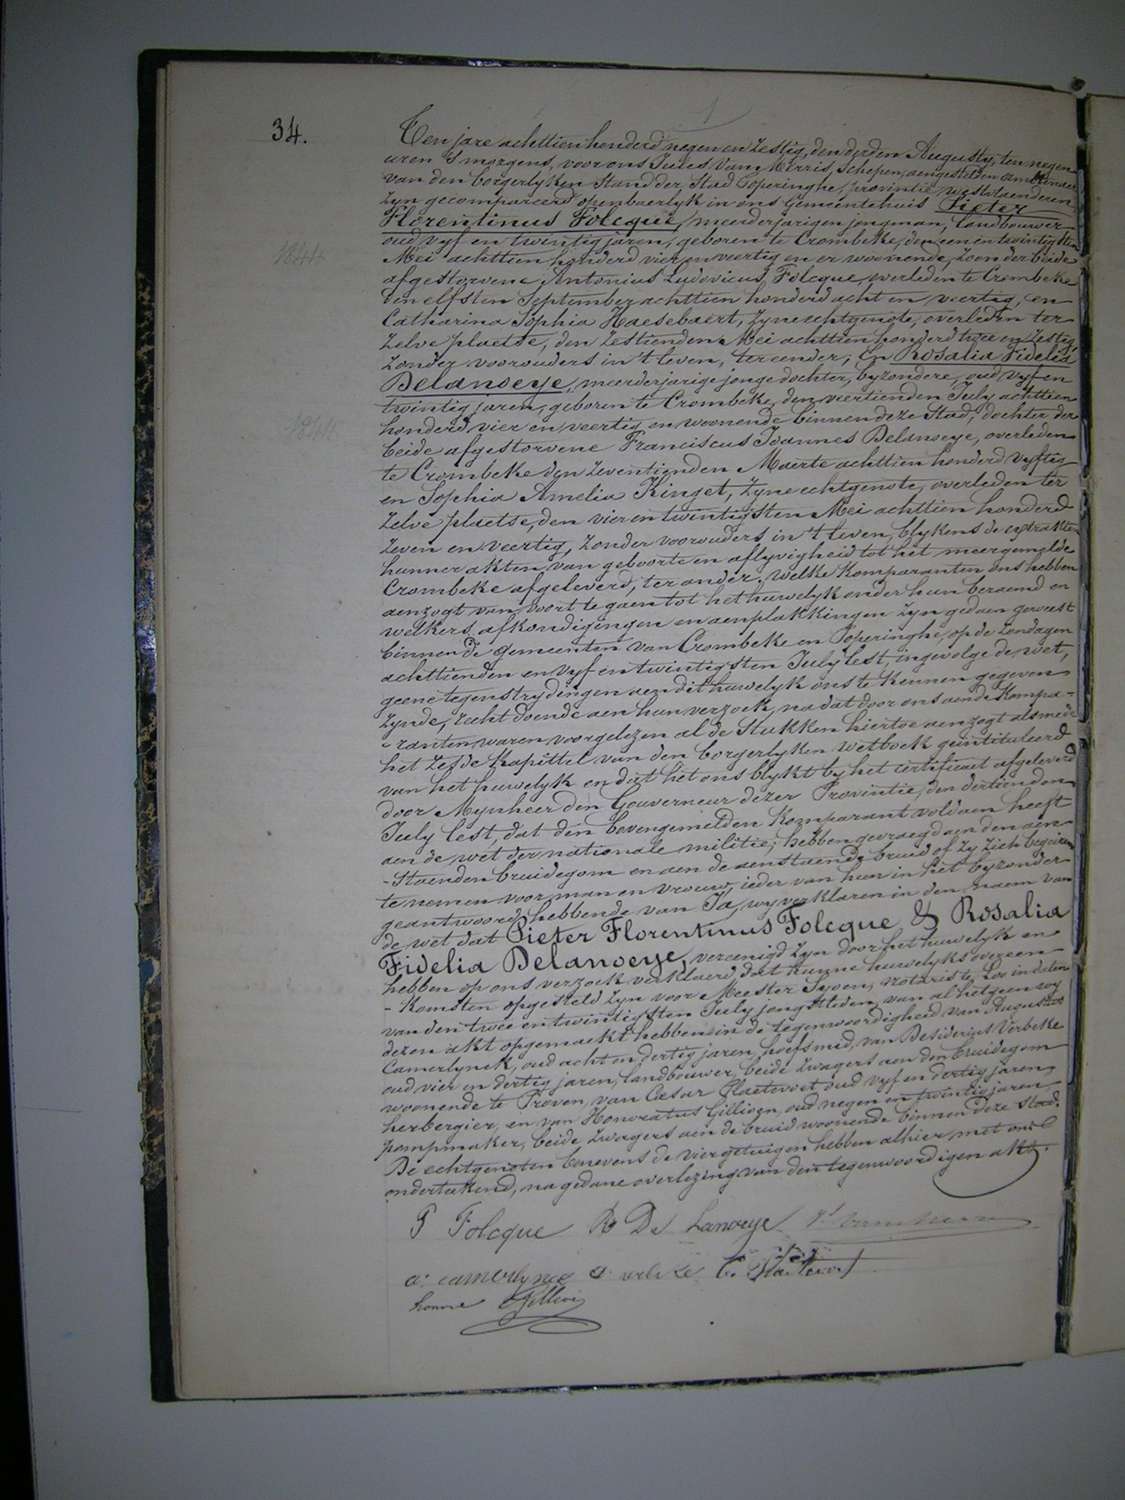 34.
Ten jare achttien honderd negen en zestig, den derden Augusty, ten negen
uren 's morgens, voor ons Jules Van Merris, schepen, aengestelden ambtenaer
van den borgerlyken Stand der Stad Poperinghe, provintie westvlaenderen
zyn gecompareerd openbaerlyk in ons Gemeentehuis Pieter
Florentinus Folcque, meerderjarigen jongman, landbouwer
oud vyf en twintig jaren, geboren te Crombeke, den een en twintigsten
1844 Mei achttien honderd vier en veertig en er woonende, zoon der beide
afgestorvene Antonius Ludovicus Folcque, overleden te Crombeke
den elfsten September achttien honderd acht en veertig, en
Catharina Sophia Haesebaert, zyne echtgenote, overleden ter
zelve plaetse, den zestienden Mei achttien honderd twee en zestig,
zonder voorouders in 't leven, ter eender, en Rosalia Fidelia
Delanoeye, meerderjarige jonge dochter, byzondere, oud vyf en
twintig jaren, geboren te Crombeke, den veertienden July achttien
1844 honderd vier en veertig en woonende binnen deze Stad, dochter der
beide afgestorvene Franciscus Joannes Delanoeye, overleden
te Crombeke den zeventienden Maerte achttien honderd vyftig
en Sophia Amelia Kinget, zyne echtgenote, overleden ter
zelve plaetse, den vier en twintigsten Mei achttien honderd
zeven en veertig, zonder voorouders in 't leven, blykens de extrakten
hunner akten van geboorte en aflyvigheid tot het meergemelde
Crombeke afgeleverd, ter ander. Welke komparanten ons hebben
aenzogt van voort te gaen tot het huwelyk onder hun beraemd en
welkers afkondigingen en aenplakkingen zyn gedaen geweest
binnen de gemeenten van Crombeke en Poperinghe, op de zondagen
achttienden en vyf en twintigsten July lest, ingevolge de wet,
geene tegenstrydingen aen dit huwelyk ons te kennen gegeven
zynde, recht doende aen hun verzoek, na dat door ons aen de Kompa-
-ranten, waren voorgelezen al de Stukken hiertoe aenzogt alsmede
het zesde Kapittel van den borgerlyken wetboek geintituleerd
van het huwelyk en dat het ons blykt by het certificaet afgeleverd
door Mynheer den Gouverneur dezer Provintie, den dertienden
July lest, dat den bovengemelden Komparant voldaen heeft
aen de wet der nationale militie; hebben gevraegd aen den aen-
-staenden bruidegom en aen de aenstaende bruid of zy zich begeiren
te nemen voor man en vrouw, ieder van hun in het byzonder
geantwoord hebbende van Ja, wy verklaren in den naem van
de wet dat Pieter Florentinus Folcque & Rosalia
Fidelia Delanoeye, vereenigd zyn door het huwelyk en
hebben op ons verzoek verklaerd dat hunne huwelyks overeen-
-komsten opgesteld zyn voor Meester notaris te Loo in daten
van den twee en twintigsten July jongstleden, van al hetgeen wy
dezen akt opgemaekt hebben in de tegenwoordigheid van Augustus
Camerlynck, oud acht en dertig jaren, hoefsmid, van Desiderius Verbeke
oud vier en dertig jaren, landbouwer, beide zwagers aen den bruidegom
woonende te Proven, van Cæsar Plaetevoet oud vyf en dertig jaren
herbergier, en van Honoratus Gillioen, oud negen en twintig jaren
pompmaker, beide zwagers aen de bruid woonende binnen deze stad.
De echtgenoten benevens de vier getuigen hebben alhier met ons
onderteekend, na gedane overlezing van den tegenwoordigen akt.
P Folcque R De Lanoeye
a. camerlynck